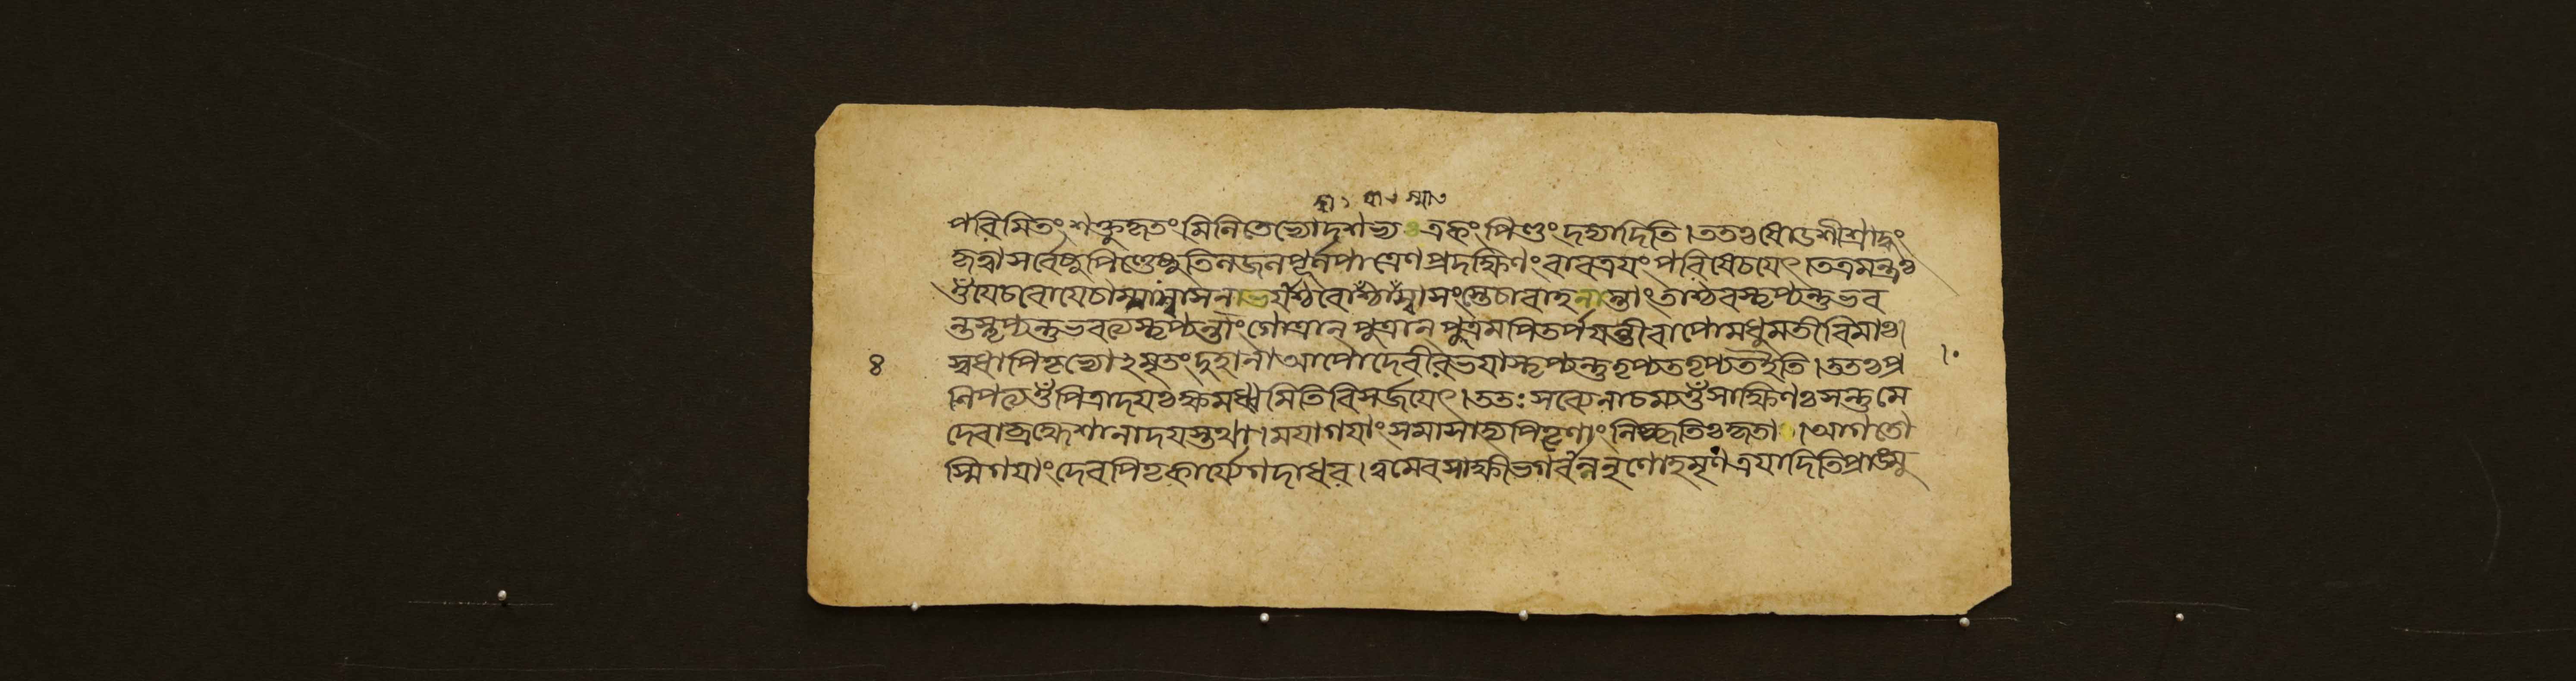 পরিমিতং শক্তুকৃতং মিনিতেভ্যোদশভ্য একং পিণ্ডং দদ্যাদিতি । ততঃ ষোডশীশ্রাদ্ধং
কৃত্বা সর্বেষু পিণ্ডেষু তিনজনপূর্ণপাত্রেণ প্রদক্ষিণং বাবত্রযং পরিষেচযেৎ । তত্রমন্ত্রঃ
ওঁ যেচবোযেচাস্মাস্বাসনাভযঁশ্চবোঁশ্চাঁস্বাসংস্তেচাবাহনান্তাং তাশ্চবস্তৃপ্যন্তুভব
ন্তস্তৃপ্যন্তুভবত্যস্তৃপ্যন্তাং গোত্রান্ পুত্রান্ পুত্রমপিতর্পযন্তীবাপোমধুমতীবিমাঃ।
৪ স্বধাপিতৃভ্যোঽমৃতংদুহানা আপোদেবীরুভযাস্তৃপ্যন্তুতৃপ্যততৃপ্যতইতি । ততঃপ্র
নিপত্যওঁপিত্রাদযঃক্ষমধ্বমিতিবিসর্জযেৎ । ততঃ সব্যেনাচম্যওঁসাক্ষিণঃসন্তুমে
দেবাব্রহ্মেশানাদযস্তথা । মযাগযাংসমাসাদ্যপিতৄণাংনিষ্কৃতিঃকৃতা । আগতো
স্মিগযাংদেবপিতৃকার্যেগদাধর । ত্বমেবসাক্ষীভগবঁন্ননৃণোহমৃণত্রযাদিতিপ্রাঙ্মু